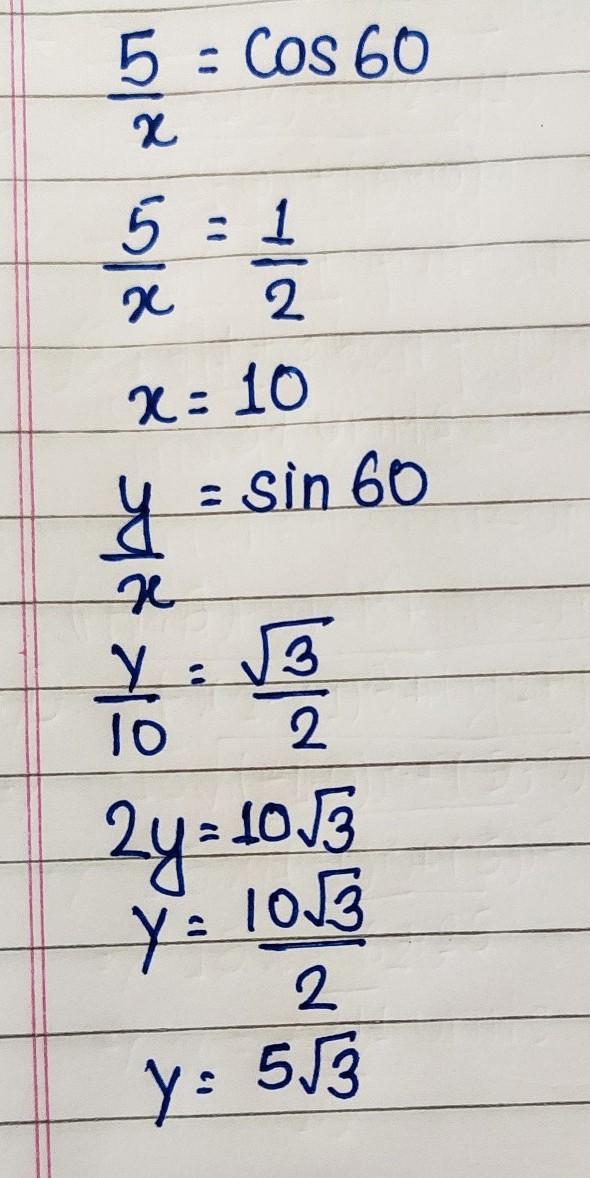 5/x = cos 60
5/x = 1/2
x = 10
y/x = sin 60
y/10 = √3/2
2y = 10√3
y = 10√3/2
y = 5√3